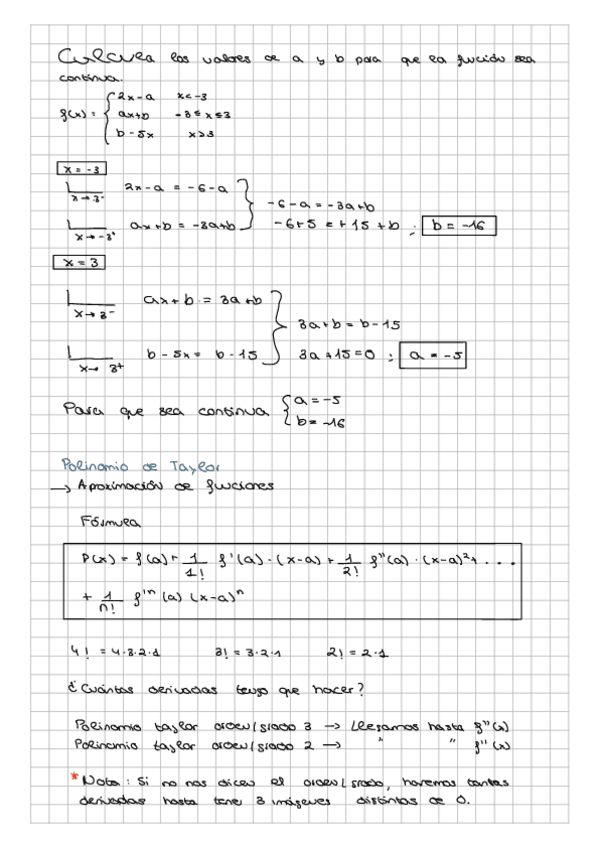 Calcula los valores de a y b para que la función sea
continua.
f(x) = { 2x - a   x < -3
ax+b   -3 ≤ x ≤ 3
b - 5x   x > 3
x = -3
L x→3⁻   2x - a = -6 - a
-6 - a = -3a+b
L x→-3⁺   ax+b = -3a+b
-6+5 = +15 + b ; b = -16
x = 3
L x→3⁻   ax + b = 3a + b
3a+b = b-15
L x→3⁺   b - 5x = b - 15
3a+15=0 ; a = -5
Para que sea continua { a = -5
b = -16
Polinomio de Taylor
→ Aproximación de funciones
Fórmula
P(x) = f(a) + 1/1! f'(a) · (x-a) + 1/2! f''(a) · (x-a)² + ...
+ 1/n! f'ⁿ (a) (x-a)ⁿ
4! = 4·3·2·1   3! = 3·2·1   2! = 2·1
¿Cuántas derivadas tengo que hacer?
Polinomio taylor orden/grado 3 → Llegamos hasta f'''(x)
Polinomio taylor orden/grado 2 → " " f''(x)
*Nota: Si no nos dicen el orden/grado, haremos tantas
derivadas hasta tene 3 imágenes distintas de 0.